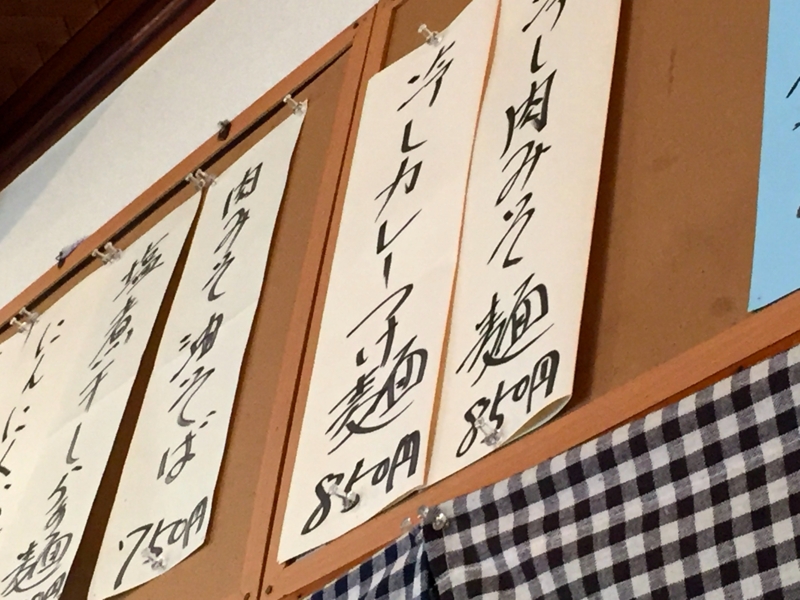 冷し肉みそ麺
850円
冷しカレーつけ麺
850円
肉みそ油そば
750円
塩煮干し
麺
にんにく